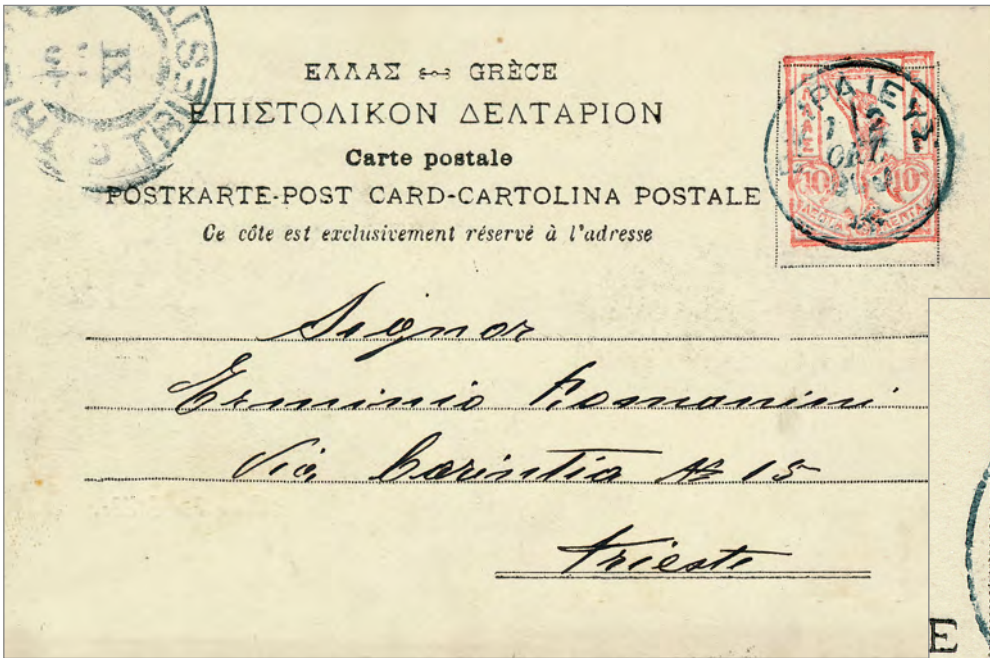 ΕΛΛΑΣ GRÈCE
ΕΠΙΣΤΟΛΙΚΟΝ ΔΕΛΤΑΡΙΟΝ
Carte postale
POSTKARTE-POST CARD-CARTOLINA POSTALE
Ce côte est exclusivement réservé à l'adresse
TRIEST
IX
ΠΕΙΡΑΙΕΥΣ
12
ΟΚΤ
10 10
Signor
Erminio Romanini
Via Carintia No 15
Trieste
E